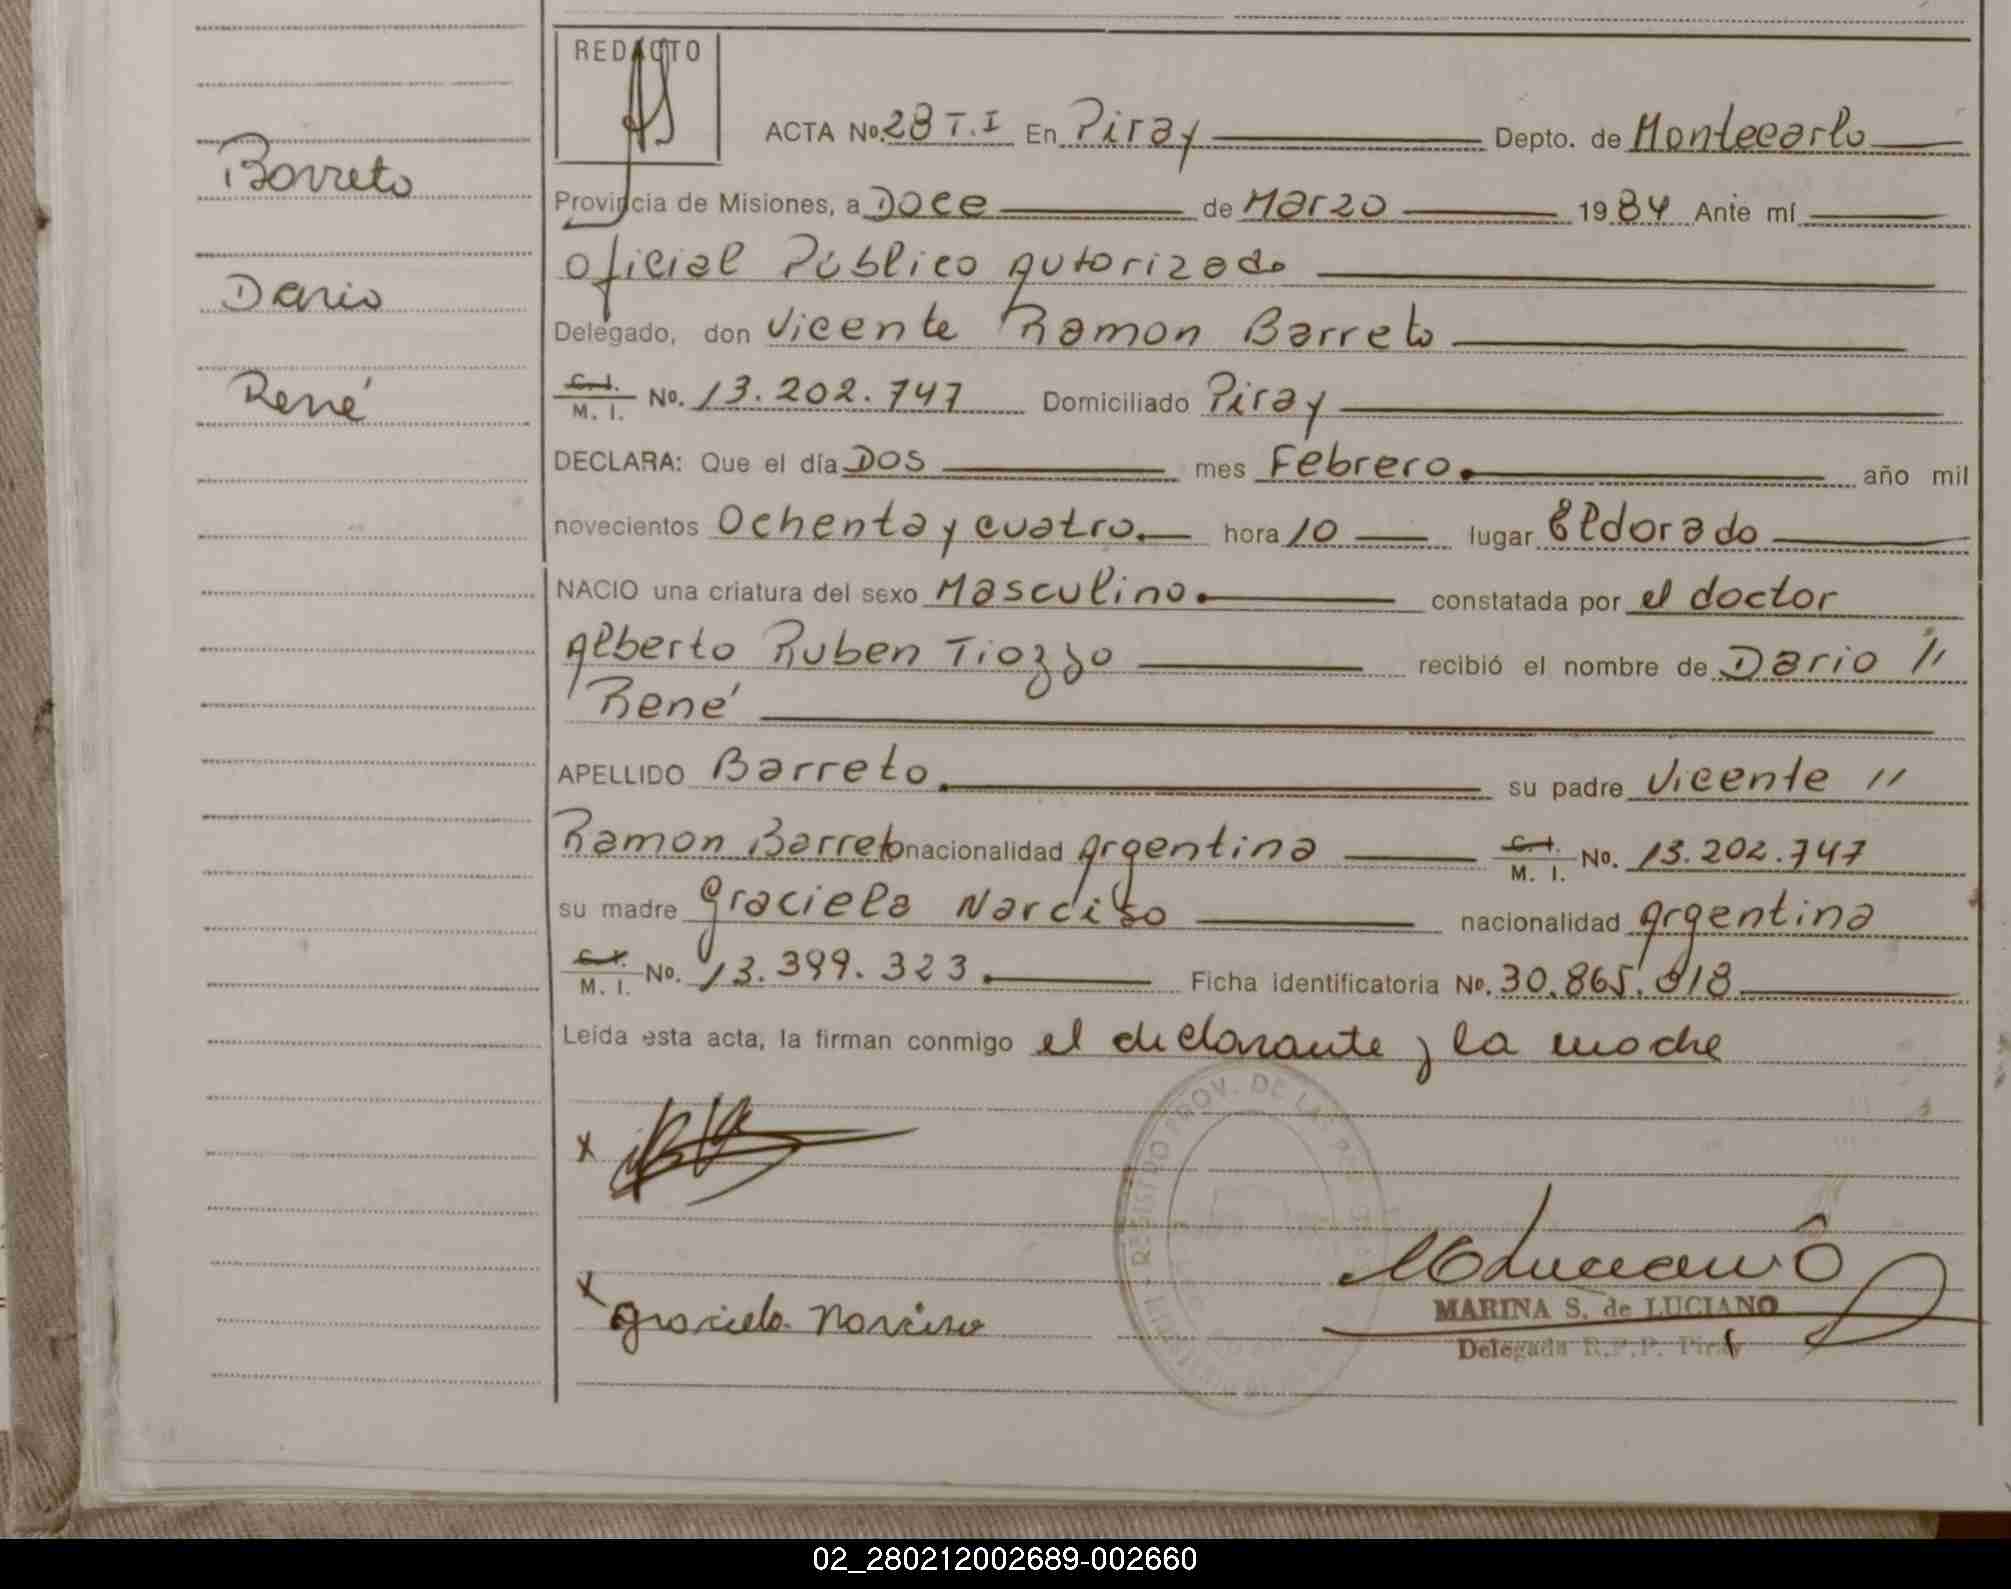 REDACTO
ACTA No. 28 T.I En Piray Depto. de Montecarlo
Barreto
Provincia de Misiones, a Doce de Marzo 1984 Ante mí
oficial Público autorizado
Dario
Delegado, don Vicente Ramon Barreto
René
C.I. M. I. No. 13.202.747 Domiciliado Piray
DECLARA: Que el día Dos mes Febrero. año mil
novecientos Ochenta y cuatro. hora 10 lugar Eldorado
NACIO una criatura del sexo Masculino. constatada por el doctor
Alberto Ruben Tiozzo recibió el nombre de Dario //
René
APELLIDO Barreto. su padre Vicente //
Ramon Barreto nacionalidad Argentina C.I. M. I. No. 13.202.747
su madre Graciela Narciso nacionalidad Argentina
C.I. M. I. No. 13.399.323. Ficha identificatoria No. 30.865.818
Leída esta acta, la firman conmigo el declarante y la madre
x
x Graciela Narciso
MARINA S. de LUCIANO
Delegada R.P.P. Piray
02_280212002689-002660